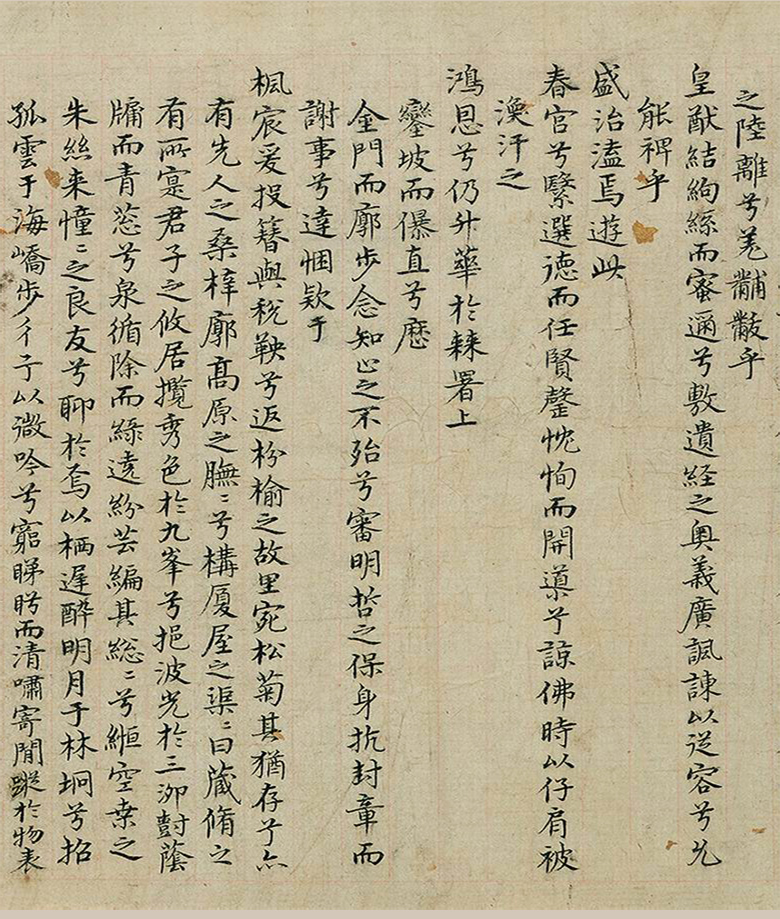 之陸離兮羌黼黻乎
皇猷結絇絲而蜜邇兮敷遺経之奥義廣諷諫以従容兮允
能禆乎
盛治溘焉遊此
春官兮繄選徳而任賢罄忱恂而開導兮諒佛時以仔肩被
渙汗之
鴻恩兮仍升華於棘署上
鑾坡而儤直兮歷
金門而廓步念知止之不殆兮審明哲之保身抗封章而
謝事兮達悃欵于
楓宸爰投簮與稅鞅兮返枌榆之故里宛松菊其猶存兮亦
有先人之桑梓廓高原之膴〻兮構厦屋之渠〻曰藏脩之
有所寔君子之攸居攬秀色於九峯兮挹波光於三泖對蔭
牗而青蒍兮泉循除而綠遶紛芸編其総〻兮絚空桒之
朱絲来憧〻之良友兮聊於焉以栖遲酔明月于林坰兮招
孤雲于海嶠步彳亍以微吟兮窮睇眄而清嘯寄閒蹤於物表